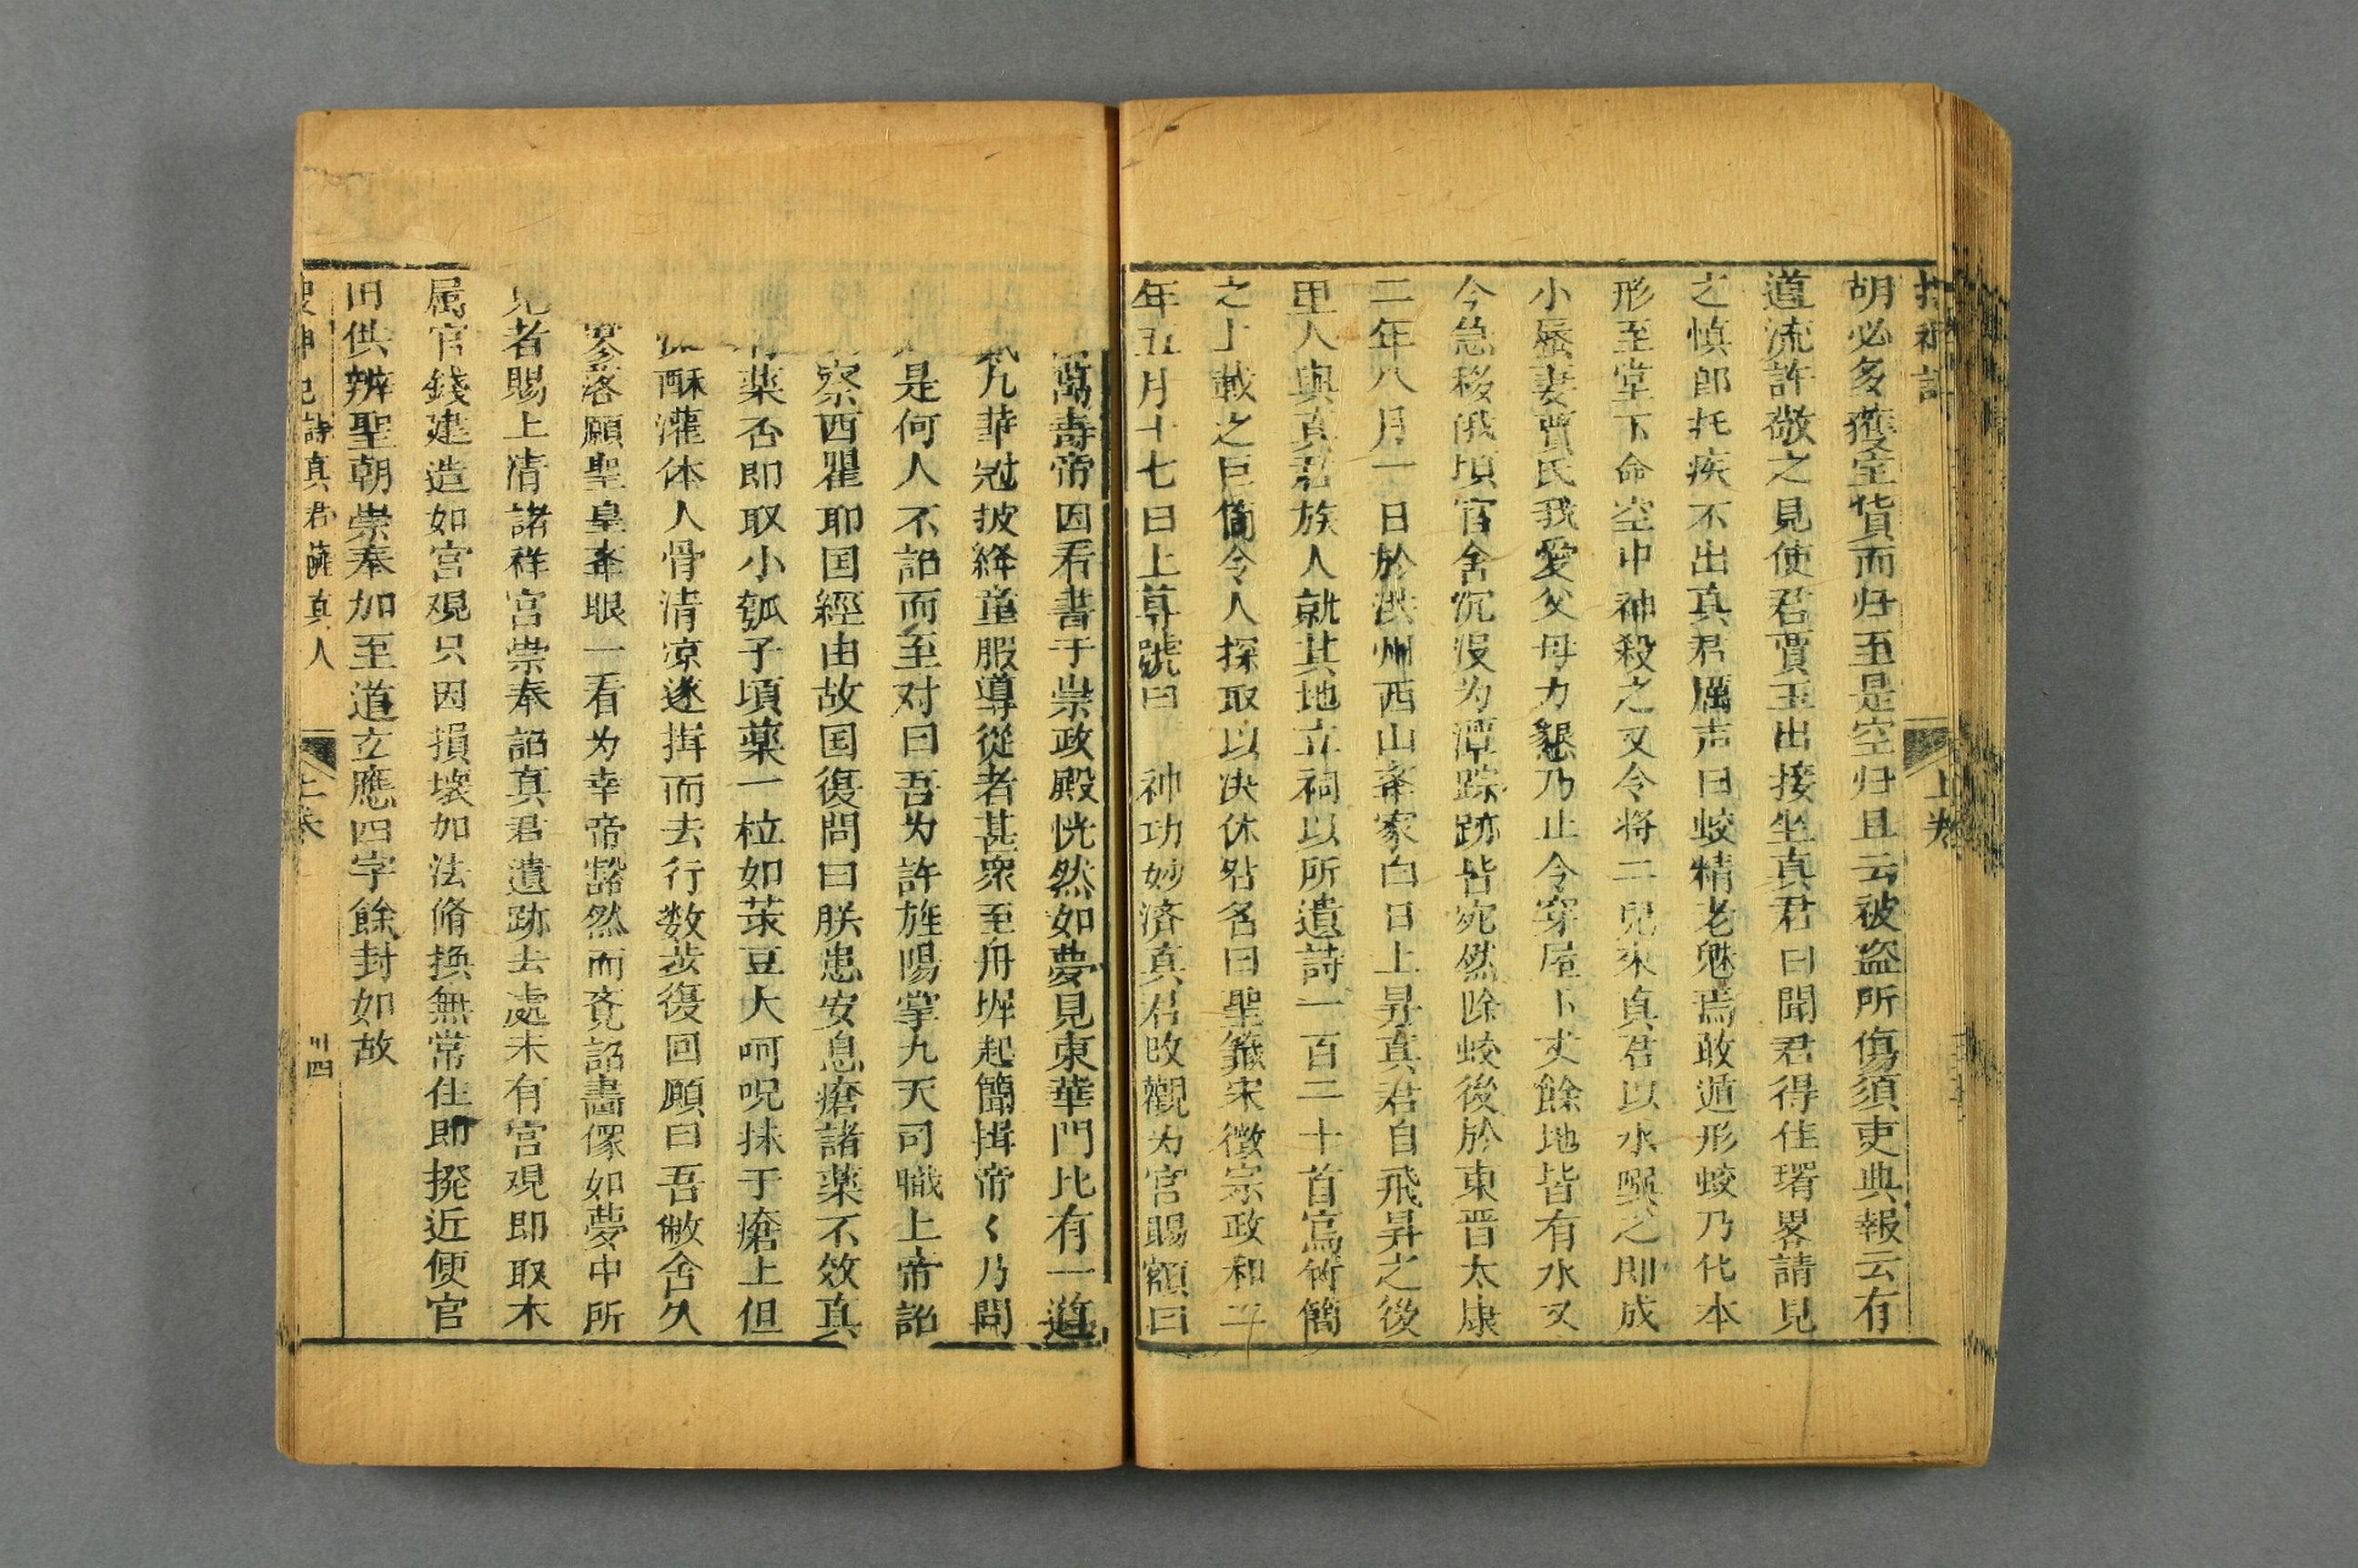 胡必多蓰空貨而归至是空归且云被盗所傷須吏典報云有
道流許敬之見使君賈玉出接坐真君曰聞君得佳壻畧請見
之慎郎托疾不出真君厲声曰蛟精老魅焉敢遁形蛟乃化本
形至堂下命空中神殺之又令将二兒来真君以水噀之即成
小蜃妻賈氏我愛父母力懇乃止令穿屋下丈餘地皆有水又
今急移俄頃官舍沉没为潭踪跡皆宛然除蛟後於東晋太康
二年八月一日於洪州西山夆家白日上昇真君自飛昇之後
里人與真君族人就其地立祠以所遺詩一百二十首寫竹簡
之上載之巨筒令人探取以决休咎名曰聖籖宋徽宗政和二
年五月十七日上尊號曰 神功妙济真君改觀为宫賜額曰
萬壽帝因看書于崇政殿恍然如夢見東華門比有一道
九華冠披絳童服導從者甚衆至丹墀起簡揖帝く乃問
是何人不詔而至对曰吾为許旌陽掌九天司職上帝詔
察西瞿耶国經由故国復問曰朕患安息瘡諸薬不效真
薬否即取小瓠子頃薬一粒如菉豆大呵呪抹于瘡上但
酥灌体人骨清凉遂揖而去行数步復回顧曰吾敝舍久
寥落願聖皇夆眼一看为幸帝豁然而覚詔畵像如夢中所
見者賜上清諸祥宫崇奉詔真君遺跡去處未有宫观即取本
属官錢建造如宫观只因損壊加法脩换無常住即撥近便官
田供辨聖朝崇奉加至道立應四字餘封如故
許真君 薩真人
上卷
卅四